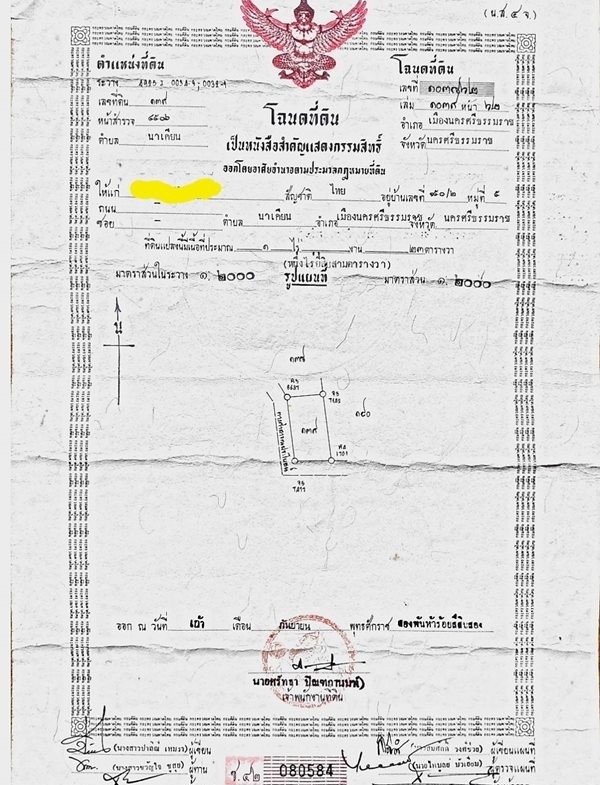 (น.ส.๔ จ.)
ตำแหน่งที่ดิน
ระวาง
เลขที่ดิน ๑๓๙
หน้าสำรวจ
ตำบล นาเคียน
โฉนดที่ดิน
เลขที่ ๑๐๓๙๖๒
เล่ม ๑๐๓๙ หน้า ๖๒
อำเภอ เมืองนครศรีธรรมราช
จังหวัด นครศรีธรรมราช
โฉนดที่ดิน
เป็นหนังสือสำคัญแสดงกรรมสิทธิ์
ออกโดยอาศัยอำนาจตามประมวลกฎหมายที่ดิน
ให้แก่ สัญชาติ ไทย อยู่บ้านเลขที่ ๙๐/๒ หมู่ที่ ๕
ถนน –
ซอย – ตำบล นาเคียน อำเภอ เมืองนครศรีธรรมราช จังหวัด นครศรีธรรมราช
ที่ดินแปลงนี้มีเนื้อที่ประมาณ ๑ ไร่ – งาน ๒๓ ตารางวา
(หนึ่งไร่ยี่สิบสามตารางวา)
มาตราส่วนในระวาง ๑:๒๐๐๐ รูปแผนที่ มาตราส่วน ๑:๒๐๐๐
น
๑๓๗
๑๓๙
๑๔๐
ออก ณ วันที่ เก้า เดือน กันยายน พุทธศักราช สองพันห้าร้อยสี่สิบสอง
เจ้าพนักงานที่ดิน
ผู้เขียน
ผู้เขียนแผนที่
ผู้ทาน
ผู้ตรวจแผนที่
ช.๔๒ 080584